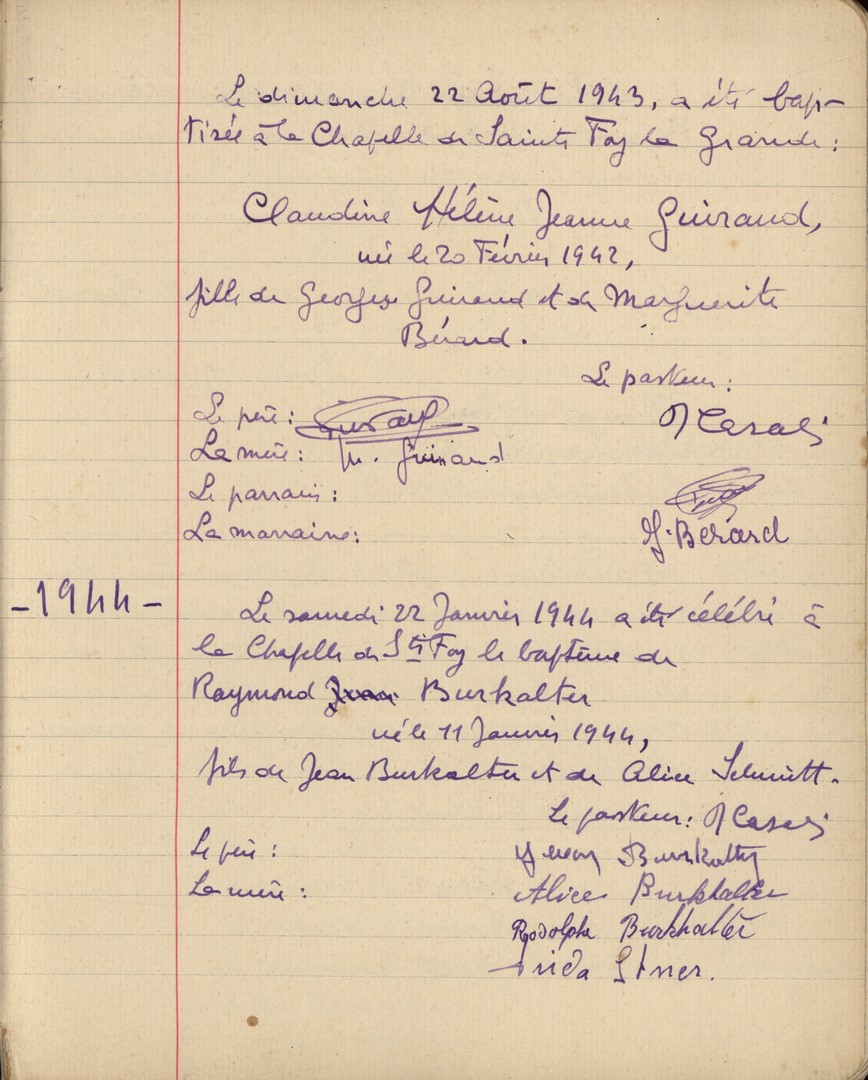 Le dimanche 22 Août 1943, a été bap-
tisée à la Chapelle de Sainte Foy la Grande :
Claudine Hélène Jeanne Guiraud,
née le 20 Février 1942,
fille de Georges Guiraud et de Marguerite
Bérard.
Le pasteur :
Le père :
R Casalis
La mère : M. Guiraud
Le parrain :
La marraine :
G. Bérard
- 1944 -
Le samedi 22 Janvier 1944 a été célébré à
la Chapelle de Ste Foy le baptême de
Raymond Burkalter
né le 11 Janvier 1944,
fils de Jean Burkalter et de Alice Schmitt.
Le pasteur : R Casalis
Le père : Jean Burkalter
La mère : Alice Burkhalter
Rodolphe Burkhalter
Frida